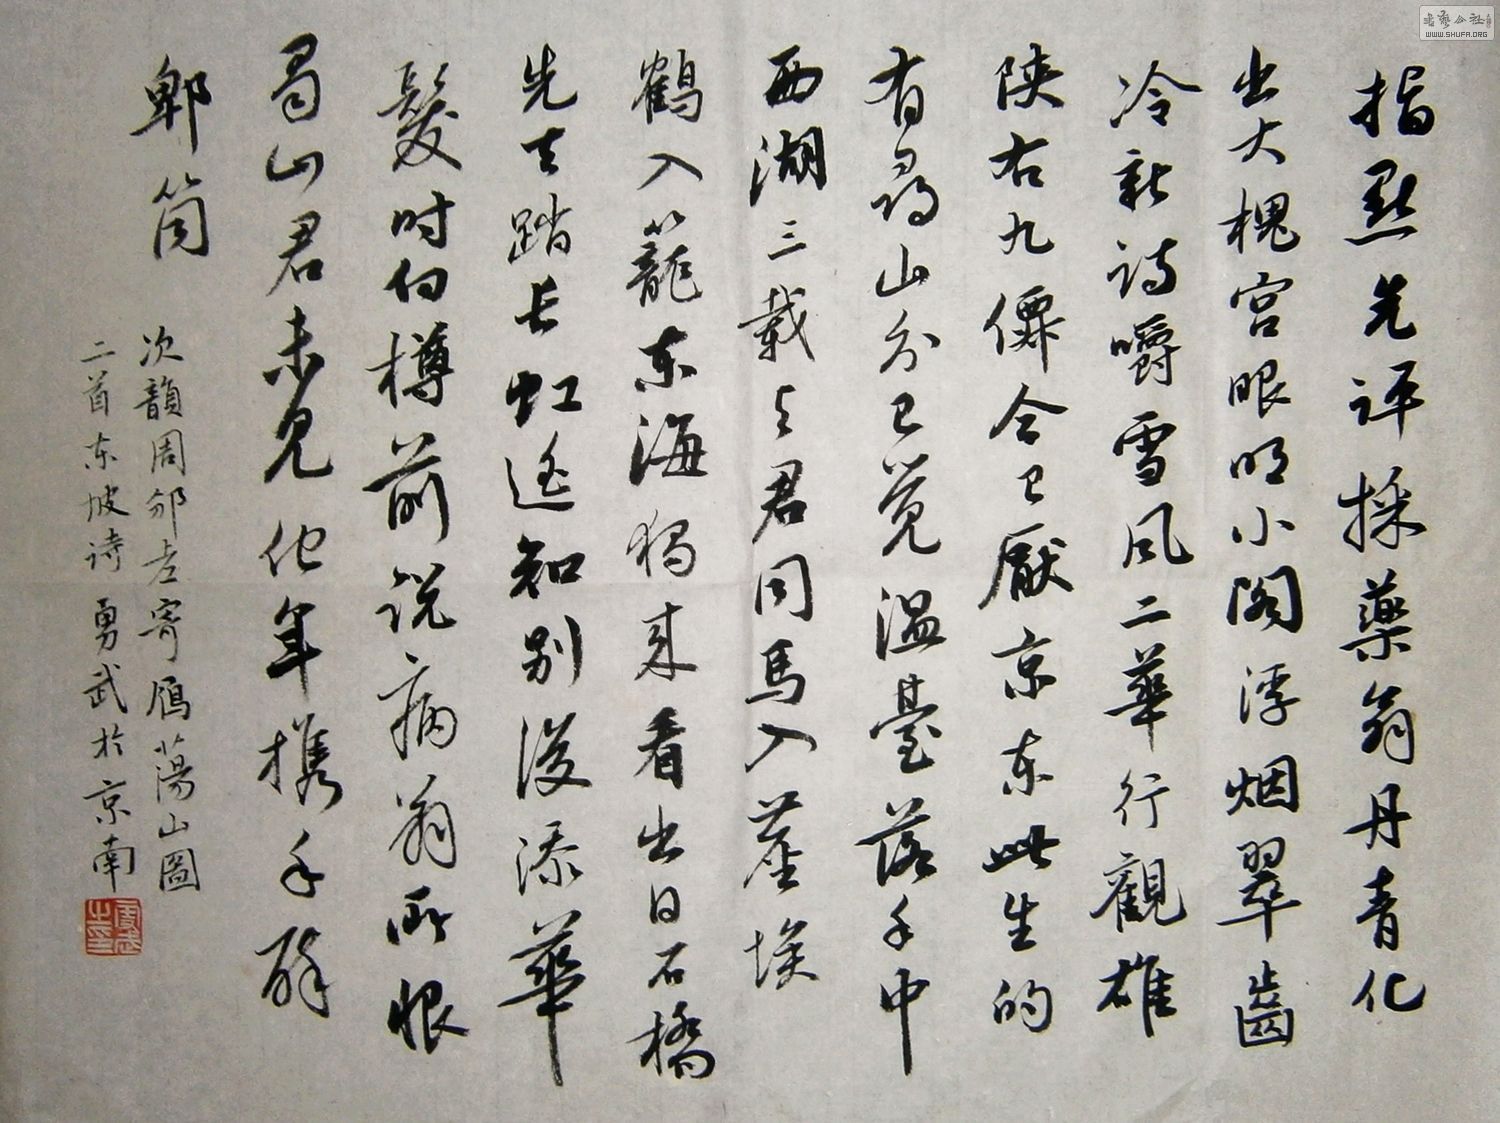 指點先評採藥翁丹青化
出大槐宫眼明小閣浮烟翠齒
冷新詩嚼雪风二華行觀雄
陕右九僊今已厭京东此生的
有尋山分已覚温臺落手中
西湖三載与君同馬入塵埃
鶴入籠东海獨来看出日石橋
先去踏长虹遥知别後添華
髮时向樽前说病翁所恨
蜀山君未見他年携手醉
郫筒
次韻周邠
寄雁蕩山圖
二首东坡诗 勇武於京南
WWW.SHUFA.ORG